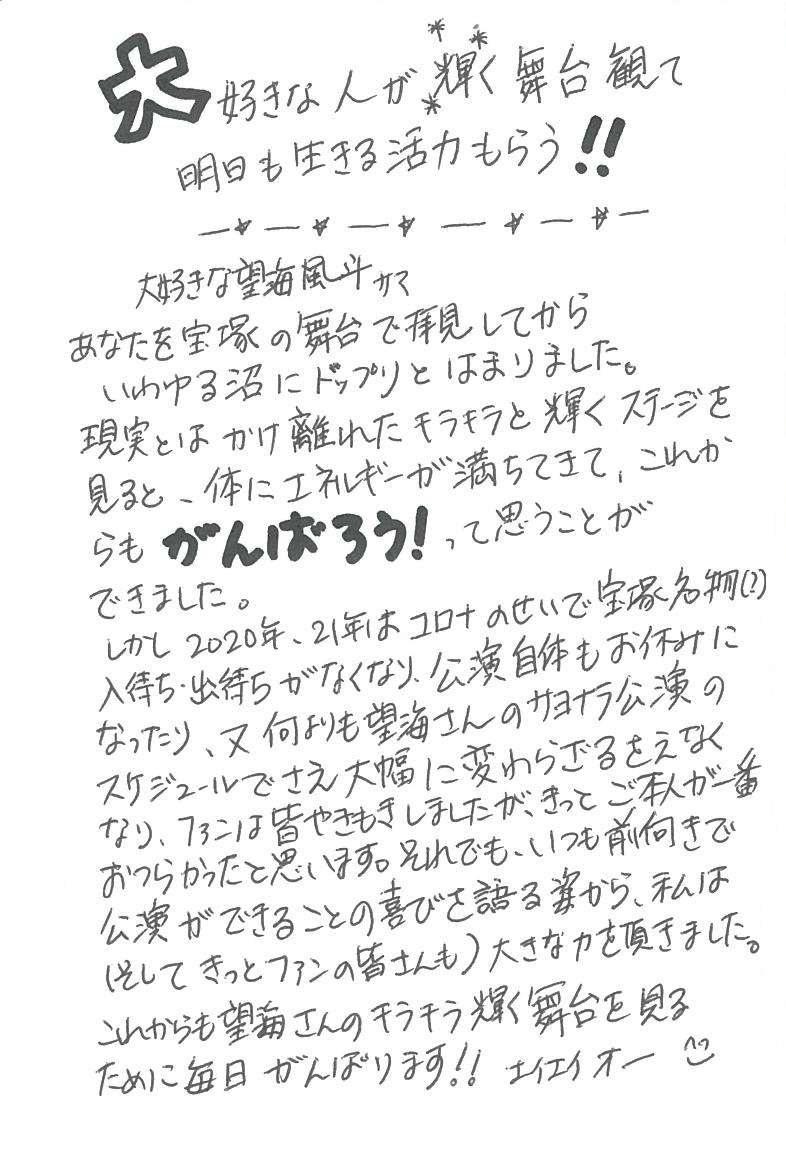 大好きな人が輝く舞台観て
明日も生きる活力もらう!!
大好きな望海風斗サマ
あなたを宝塚の舞台で拝見してから
いわゆる沼にドップリとはまりました。
現実とはかけ離れたキラキラと輝くステージを
見ると、体にエネルギーが満ちてきて、これか
らもがんばろう!って思うことが
できました。
しかし2020年、21年はコロナのせいで宝塚名物(?)
入待ち・出待ちがなくなり、公演自体もお休みに
なったり、又何よりも望海さんのサヨナラ公演の
スケジュールでさえ大幅に変わらざるをえなく
なり、ファンは皆やきもきしましたが、きっとご本人が一番
おつらかったと思います。それでも、いつも前向きで
公演ができることの喜びを語る姿から、私は
(そしてきっとファンの皆さんも)大きな力を頂きました。
これからも望海さんのキラキラ輝く舞台を見る
ために毎日がんばります!! エイエイオー